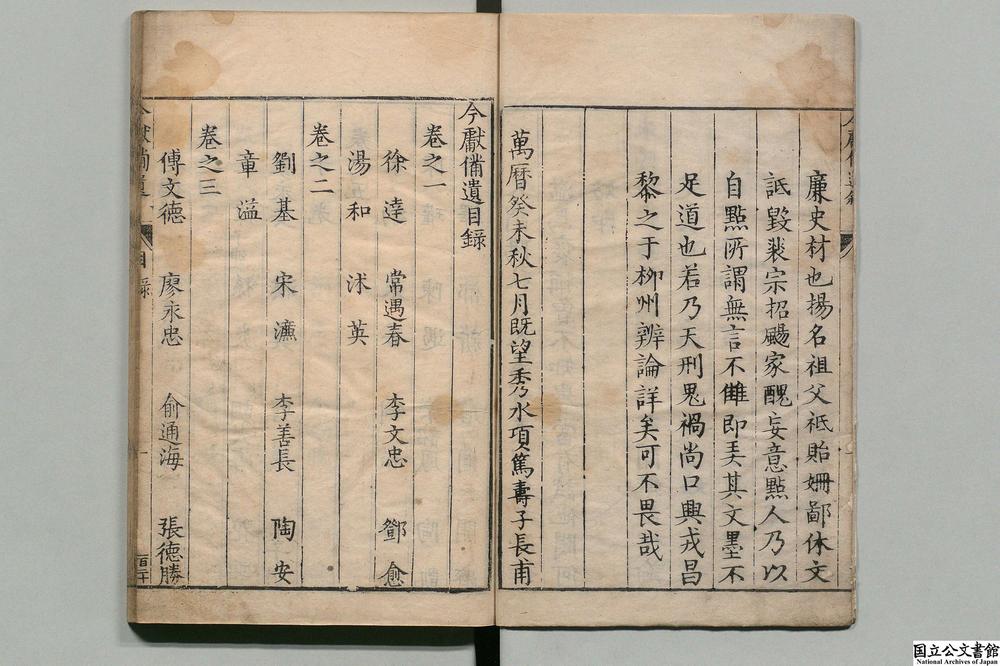 廉史材也揚名祖父祗貽姍鄙休文
詆毀裴宗招颺家醜妄意點人乃以
自點所謂無言不讎即美其文墨不
足道也若乃天刑鬼禍尚口興戎昌
黎之于柳州辨論詳矣可不畏哉
萬曆癸未秋七月既望秀水項篤壽子長甫
今獻備遺目錄
卷之一
徐達 常遇春 李文忠 鄧愈
湯和 沐英
卷之二
劉基 宋濂 李善長 陶安
章溢
卷之三
傅文德 廖永忠 俞通海 張德勝
今獻備遺 目錄 一
国立公文書館
National Archives of Japan